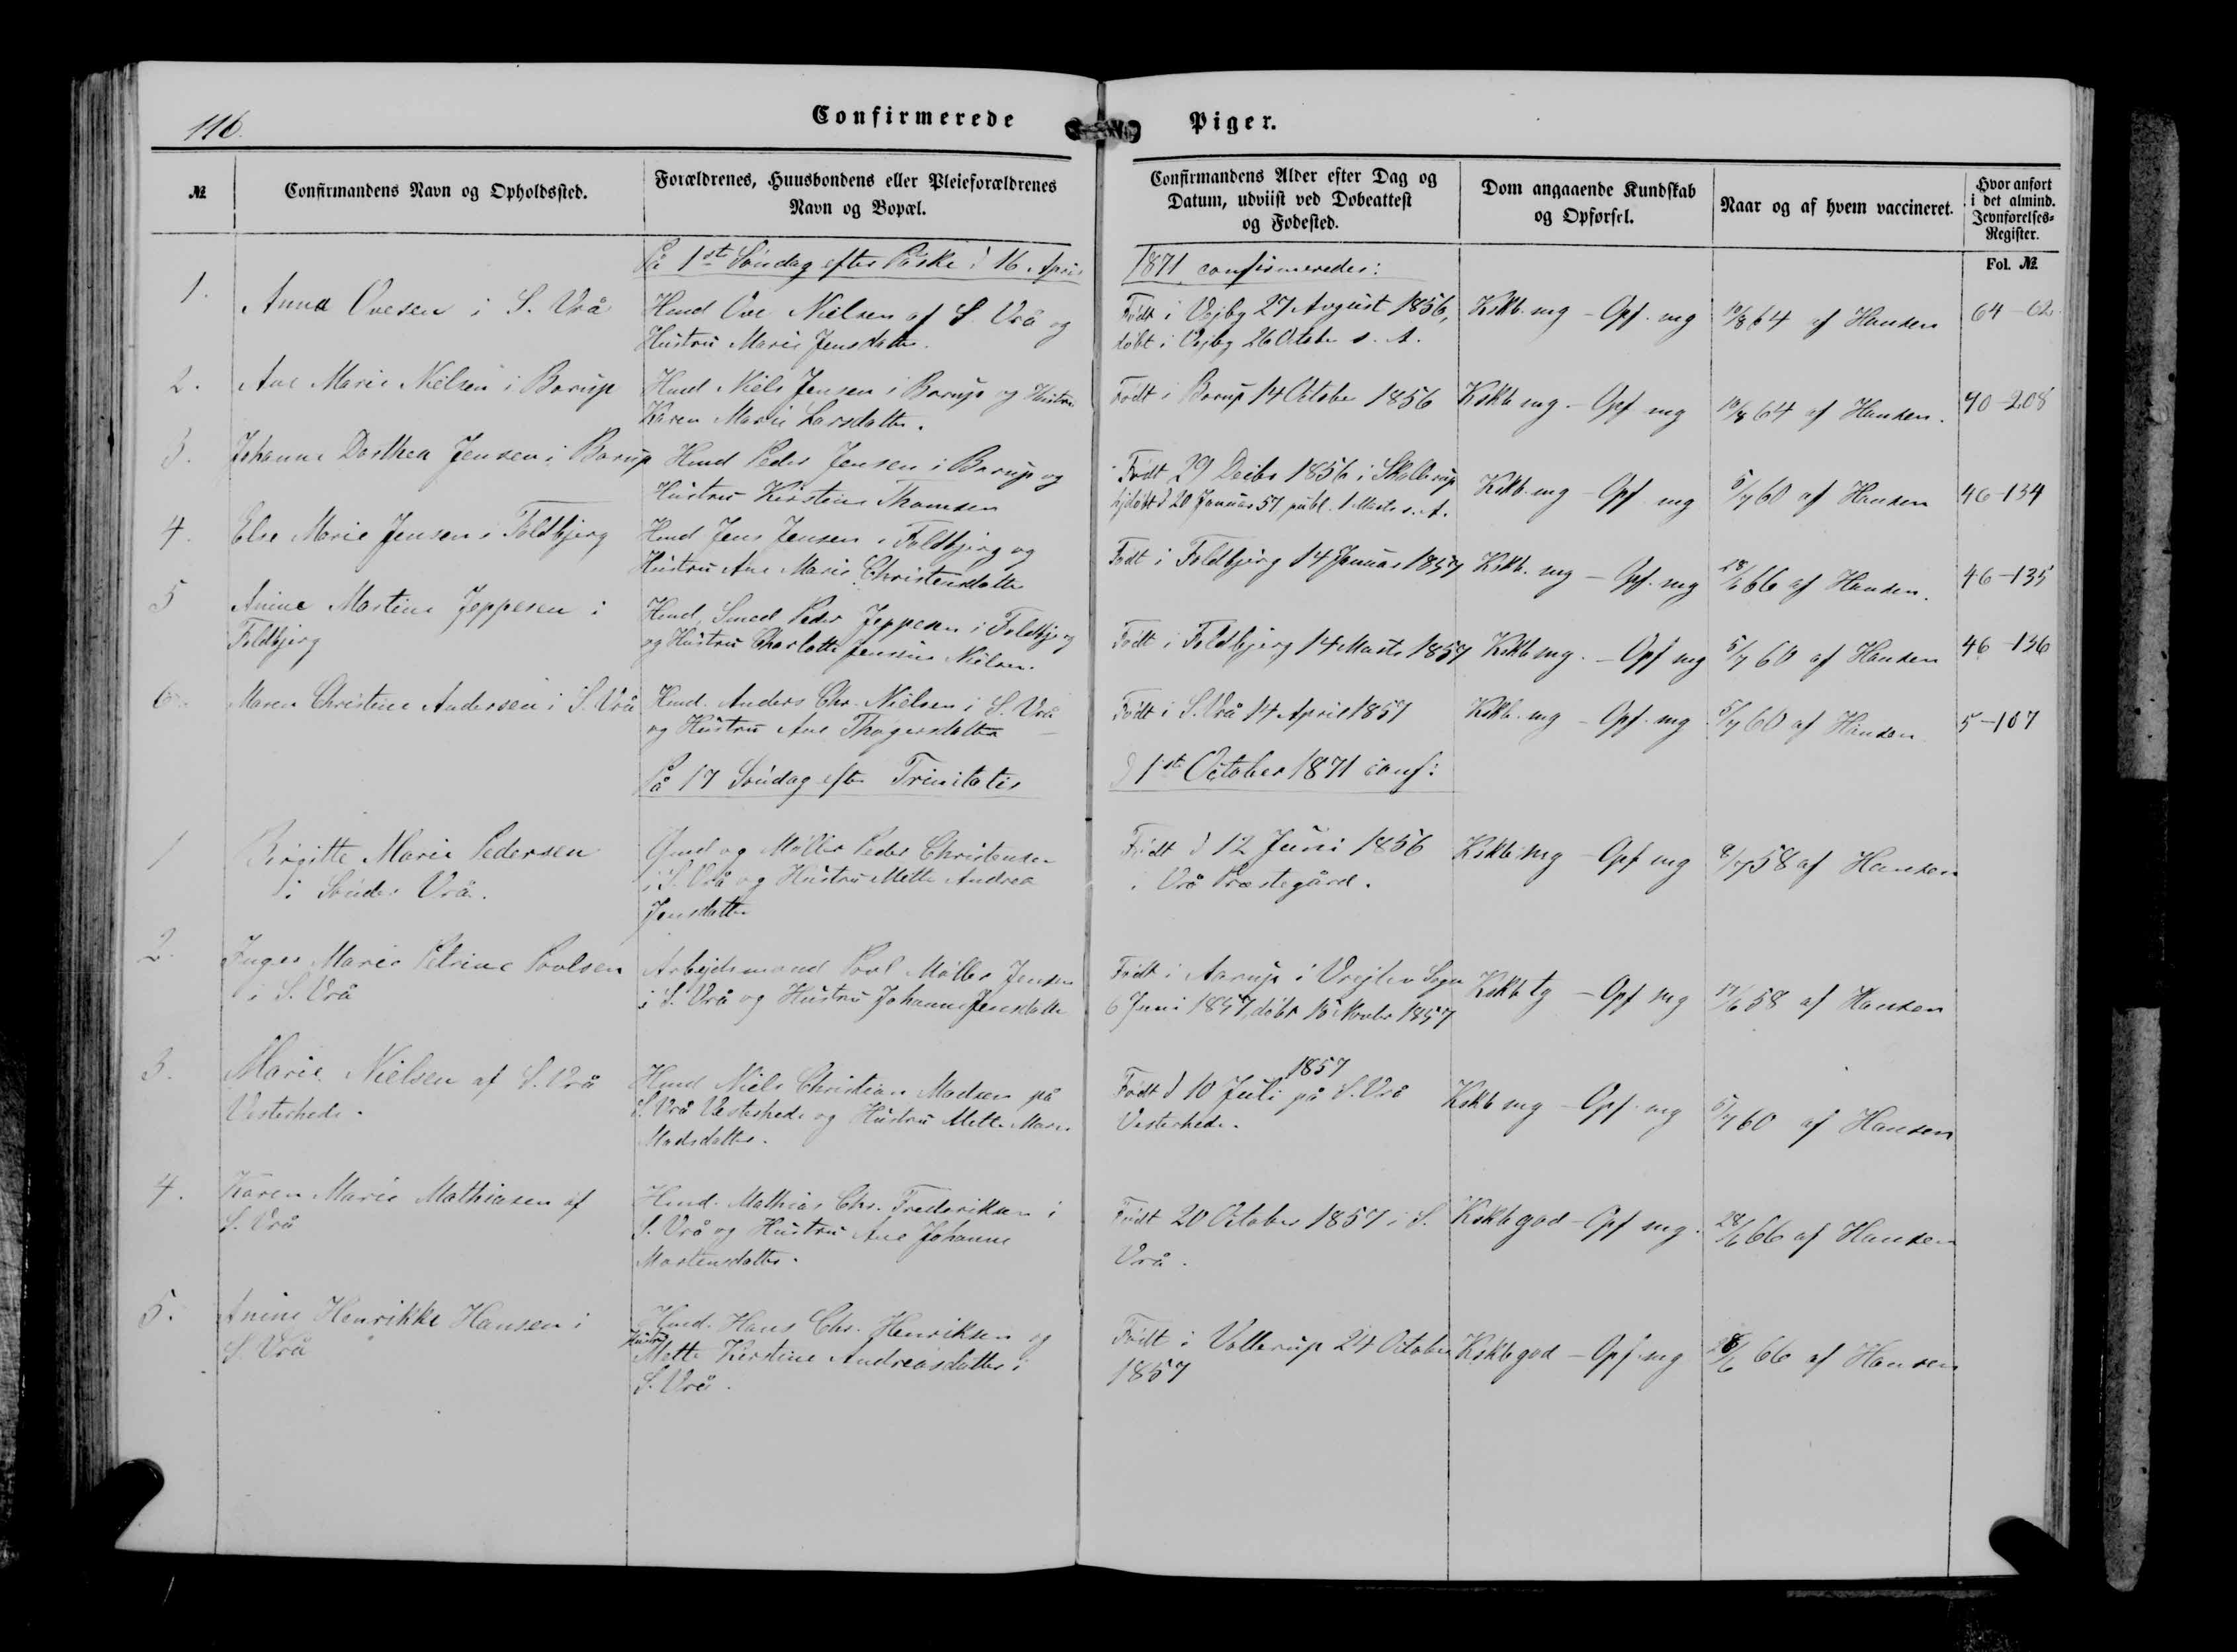 116.
Confirmerede Piger.
№
Confirmandens Navn og Opholdssted.
Forældrenes, Huusbondens eller Pleieforældrenes
Navn og Bopæl.
Confirmandens Alder efter Dag og
Datum, udviist ved Døbeattest
og Fødested.
Dom angaaende Kundskab
og Opførsel.
Naar og af hvem vaccineret.
Hvor anført
i det almind.
Jevnførelses-
Register.
Fol. №
På 1ste Søndag efter Påske d 16 April 1871 confirmeredes:
1. Anna Ovesen i S. Vrå
Hmd Ove Nielsen af S. Vrå og
Hustru Marie Jensdatter.
Født i Vejby 27 August 1856,
døbt i Vejby 26 October s. A.
Kskb. mg - Opf. mg
10/8 64 af Hansen
64-62
2. Ane Marie Nielsen i Borup
Hmd Niels Jensen i Borup og Hustru
Karen Marie Larsdatter.
Født i Borup 14 October 1856
Kskb mg - Opf mg
10/8 64 af Hansen.
40-208
3. Johanne Dorthea Jensen i Borup
Hmd Peder Jensen i Borup og
Hustru Kirstine Thomsen
Født 29 Decbr 1856 i Skallerup
hjdøbt d 20 Januar 57 publ. 1 Marts s. A.
Kskb. mg - Opf mg
5/7 60 af Hansen
46-134
4. Else Marie Jensen i Foldbjerg
Hmd Jens Jensen i Foldbjerg og
Hustru Ane Marie Christensdatter
Født i Foldbjerg 14 Januar 1857
Kskb. mg - Opf. mg
28/6 66 af Hansen.
46-135
5 Anine Martine Jeppesen i
Foldbjerg
Hmd, Smed Peder Jeppesen i Foldbjerg
og Hustru Charlotte Jensine Nielsen.
Født i Foldbjerg 14 Marts 1857
Kskb mg. - Opf mg
5/7 60 af Hansen
46-136
6. Maren Christine Andersen i S. Vrå
Hmd. Anders Chr. Nielsen i S. Vrå
og Hustru Ane Thøgersdatter
Født i S. Vrå 14 April 1857
Kskb. mg - Opf. mg
5/7 60 af Hansen
5-107
På 17 Søndag efter Trinitatis d 1ste October 1871 conf:
1 Birgitte Marie Pedersen
i Sønder Vrå.
Gmd og Møller Peder Christensen
i S. Vrå og Hustru Mette Andrea
Jensdatter
Født d 12 Juni 1856
i Vrå Præstegård.
Kskb mg - Opf mg
8/7 58 af Hansen
2. Inger Marie Petrine Povlsen
i S. Vrå
Arbejdsmand Povl Møller Jensen
i S. Vrå og Hustru Johanne Jensdatter
Født i Aarup i Vrejlev Sogn
6 Juni 1857, døbt 15 Novbr 1857
Kskb tg - Opf mg
17/6 58 af Hansen
3. Marie Nielsen af S. Vrå
Vesterhede.
Hmd Niels Christian Madsen på
S. Vrå Vesterhede og Hustru Mette Marie
Madsdatter.
Født d 10 Juli 1857 på S. Vrå
Vesterhede.
Kskb mg - Opf. mg
5/7 60 af Hansen
4. Karen Marie Mathiasen af
S. Vrå
Hmd. Mathias Chr. Frederiksen i
S. Vrå og Hustru Ane Johanne
Mortensdatter.
Født 20 October 1857 i S.
Vrå.
Kskb god - Opf mg.
28/6 66 af Hansen
5. Anine Henrikke Hansen i
S. Vrå
Hmd. Hans Chr. Henriksen og
Hustru Mette Kirstine Andreasdatter i
S. Vrå.
Født i Vollerup 24 October
1857
Kskb god - Opf. mg
28/6 66 af Hansen